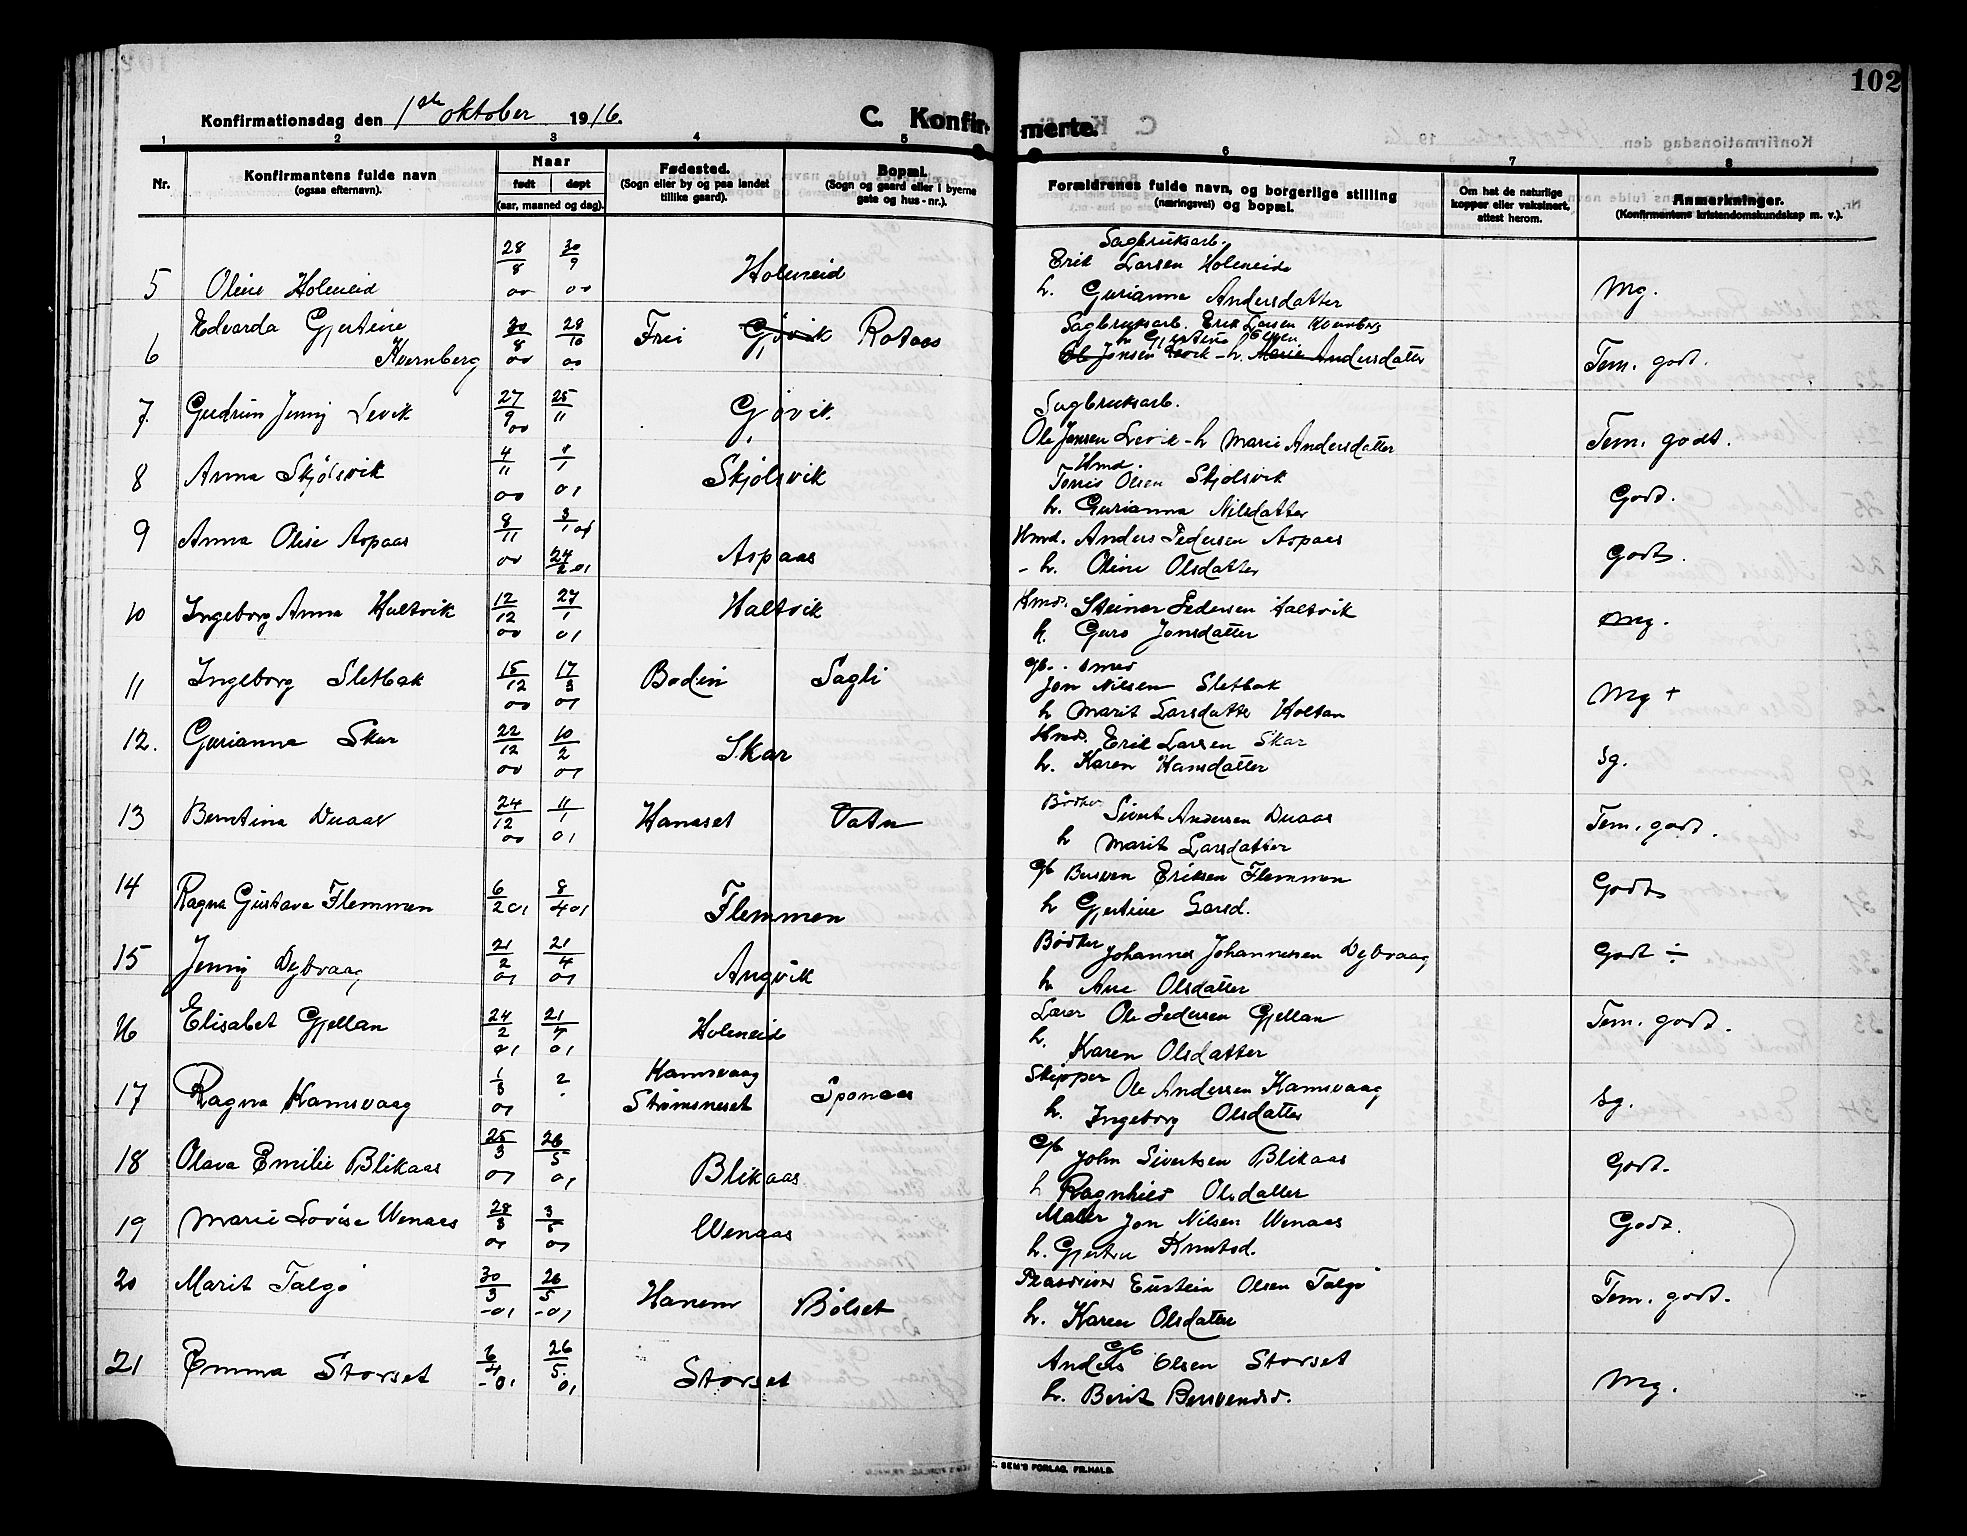 102
Konfirmationsdag den 1ste oktober 1916. C. Konfirmerte.
1 2 3 4 5 6 7 8
Nr. Konfirmantens fulde navn (ogsaa efternavn). Naar født døpt (aar, maaned og dag). Fødested. (Sogn eller by og paa landet tillike gaard). Bopæl. (Sogn og gaard eller i byerne gate og hus-nr.). Forældrenes fulde navn, og borgerlige stilling (næringsvei) og bopæl. Om hat de naturlige kopper eller vaksinert, attest herom. Anmerkninger. (Konfirmantens kristendomskundskap m. v.).
5 Oline Holeneid 28/8 00 30/9 00 Holeneid Sagbruksarb. Erik Larsen Holeneid h. Gurianna Andersdatter Mg.
6 Edvarda Gjertine Kvernberg 30/8 00 28/10 00 Frei Gjøvik Rotaas Sagbruksarb. Erik Larsen Kvernberg h Gjertine Olsen
Ole Jonsen Levik - h. Marie Andersdatter Tem. godt.
7. Gudrun Jenny Levik 27/9 00 25/11 Gjøvik. Sagbruksarb.
Ole Jonsen Levik - h Marie Andersdatter Tem. godt.
8 Anna Skjølsvik 4/11 00 1/1 01 Skjølsvik Hmd. Torris Olsen Skjølsvik
h. Gurianna Nilsdatter Godt.
9 Anna Oline Aspaas 8/11 00 3/1 01 24/2 01 Aspaas Hmd. Anders Pedersen Aspaas
- h. Oline Olsdatter Godt.
10 Ingeborg Anna Haltvik 12/12 00 27/1 01 Haltvik Hmd. Steiner Pedersen Haltvik
h. Guro Jonsdatter Mg.
11 Ingeborg Sletbak 15/12 00 17/3 01 Bodin Sagli gb. smed
Jon Nilsen Sletbak
h Marit Larsdatter Holtan Mg +
12. Gurianna Skar 22/12 00 10/2 01 Skar Hmd. Erik Larsen Skar
h. Karen Hansdatter Sg.
13 Berntina Duaas 24/12 00 11/1 01 Hanaset Vatn Bødker Sivert Andersen Duaas
h Marit Larsdatter Tem. godt.
14 Ragna Gustava Flemmen 6/2 01 8/4 01 Flemmen Gb Bersven Eriksen Flemmen
h Gjertine Larsd. Godt
15 Jenny Dybvaag 21/2 01 21/4 01 Angvik Bødker Johannes Johannesen Dybvaag
h Ane Olsdatter Godt ÷
16 Elisabet Gjellan 24/2 01 21/7 01 Holeneid Lærer Ole Pedersen Gjellan
h. Karen Olsdatter Tem. godt.
17 Ragna Kamsvaag 1/3 01 ? Kamsvaag Strømsneset Sponaas Skipper Ole Andersen Kamsvaag
h. Ingeborg Olsdatter Sg.
18 Olava Emilie Blikaas 25/3 01 26/5 01 Blikaas Gb John Sivertsen Blikaas
h Ragnhild Olsdatter Godt.
19 Marie Lovise Wenaas 28/3 01 3/5 01 Wenaas Maler Jon Nilsen Wenaas
h. Gjertru Knutsd. Godt.
20 Marit Talgø 30/3 -01 26/5 -01 Hanem Bølset Eustein Olsen Talgø
h. Karen Olsdatter Tem. godt.
21 Emma Storset 6/4 -01 26/5. 01 Storset Gb
Anders Olsen Storset
h. Berit Bersvendsd. Mg.
SEM'S FORLAG, FR.HALD.